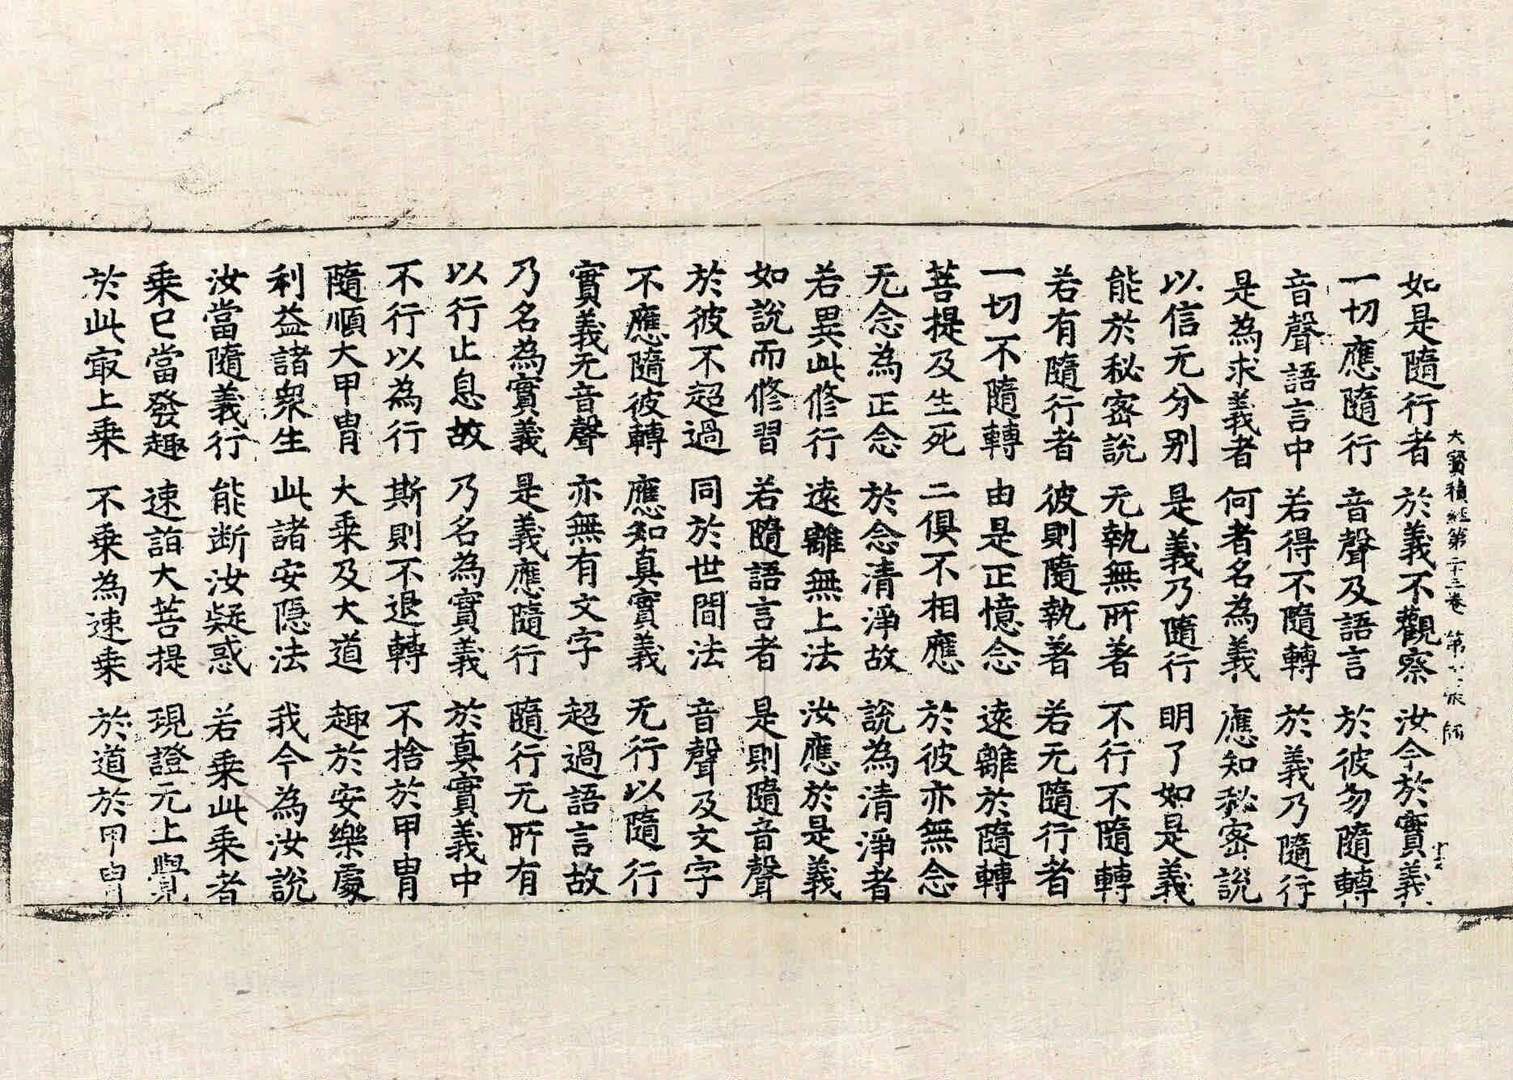 大寶積經第二十三卷 第
如是隨行者 於義不觀察 汝今於實義
一切應隨行 音聲及語言 於彼勿隨轉
音聲語言中 若得不隨轉 於義乃隨行
是為求義者 何者名為義 應知秘密說
以信无分别 是義乃隨行 明了如是義
能於秘密說 无執無所著 不行不隨轉
若有隨行者 彼則隨執著 若无隨行者
一切不隨轉 由是正憶念 遠離於隨轉
菩提及生死 二俱不相應 於彼亦無念
无念為正念 於念清淨故 說為清淨者
若異此修行 遠離無上法 汝應於是義
如說而修習 若隨語言者 是則隨音聲
於彼不超過 同於世間法 音聲及文字
不應隨彼轉 應知真實義 无行以隨行
實義无音聲 亦無有文字 超過語言故
乃名為實義 是義應隨行 隨行无所有
以行止息故 乃名為實義 於真實義中
不行以為行 斯則不退轉 不捨於甲冑
隨順大甲冑 大乘及大道 趣於安樂處
利益諸衆生 此諸安隱法 我今為汝說
汝當隨義行 能断汝疑惑 若乘此乘者
乘已當發趣 速詣大菩提 現證无上覺
於此㝡上乘 不乘為速乘 於道於甲冑